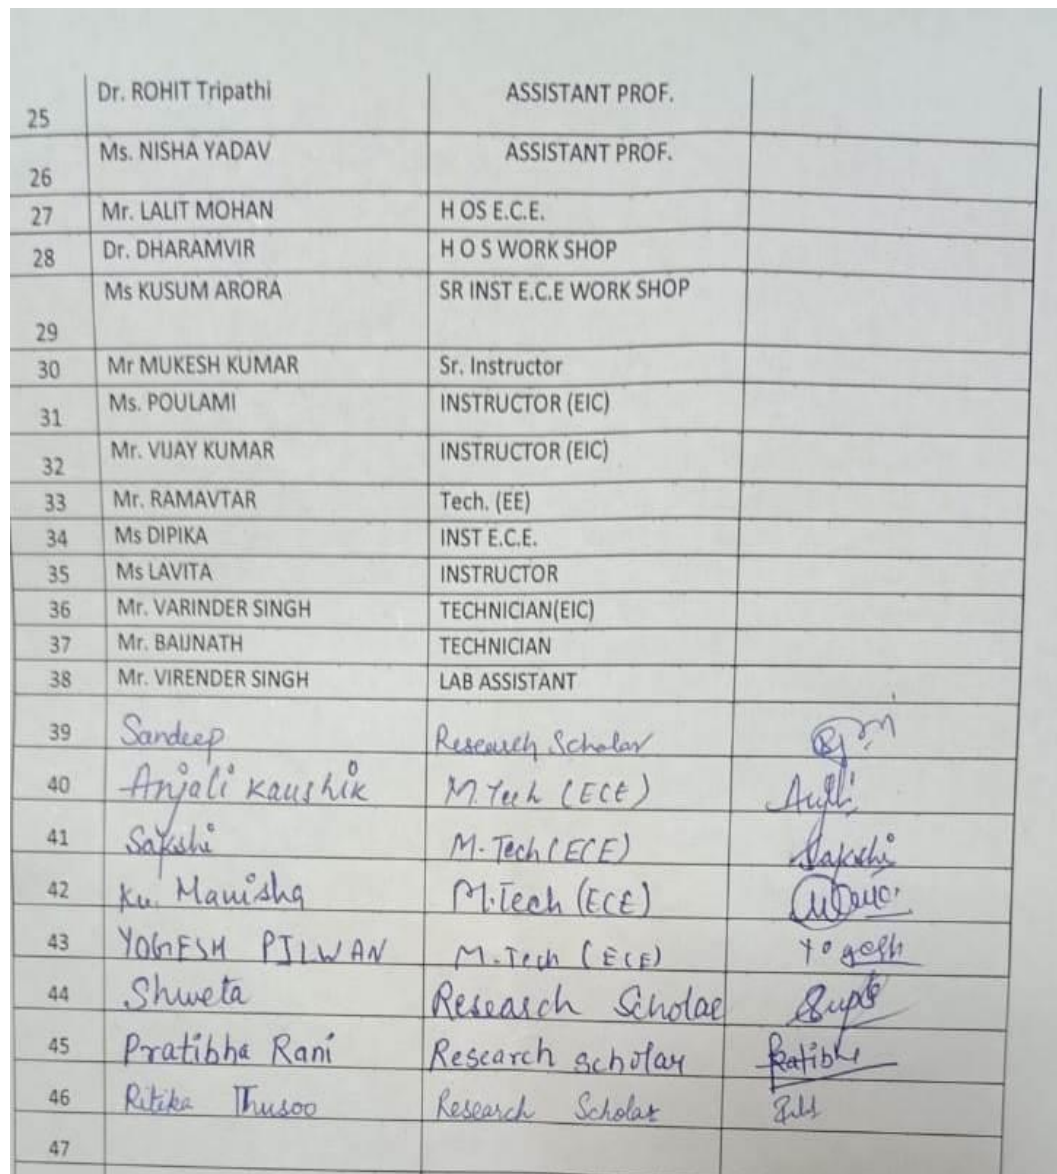 25 Dr. ROHIT Tripathi ASSISTANT PROF.
26 Ms. NISHA YADAV ASSISTANT PROF.
27 Mr. LALIT MOHAN H OS E.C.E.
28 Dr. DHARAMVIR H O S WORK SHOP
29 Ms KUSUM ARORA SR INST E.C.E WORK SHOP
30 Mr MUKESH KUMAR Sr. Instructor
31 Ms. POULAMI INSTRUCTOR (EIC)
32 Mr. VIJAY KUMAR INSTRUCTOR (EIC)
33 Mr. RAMAVTAR Tech. (EE)
34 Ms DIPIKA INST E.C.E.
35 Ms LAVITA INSTRUCTOR
36 Mr. VARINDER SINGH TECHNICIAN(EIC)
37 Mr. BAIJNATH TECHNICIAN
38 Mr. VIRENDER SINGH LAB ASSISTANT
39 Sandeep Research Scholar
40 Anjali Kaushik M.Tech (ECE)
41 Sakshi M.Tech (ECE) Sakshi
42 Ku. Manisha M.Tech (ECE)
43 YOGESH PILWAN M.Tech (ECE) Yogesh
44 Shweta Research Scholar
45 Pratibha Rani Research Scholar
46 Ritika Thusoo Research Scholar
47